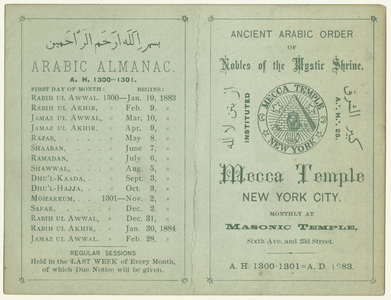 بسم الله ارحم الراحمين
ARABIC ALMANAC.
A. H. 1300-1301.
FIRST DAY OF MONTH: BEGINS:
Rabih ul Awwal, 1300—Jan. 10, 1883
Rabih ul Akhir, " Feb. 9, "
Jamaz ul Awwal, " Mar. 10, "
Jamaz ul Akhir, " Apr. 9, "
Rajab, " May 8, "
Shaaban, " June 7, "
Ramadan, " July 6, "
Shawwal, " Aug. 5, "
Dhu'l-Kaada, " Sept. 3, "
Dhu'l-Hajja, " Oct. 3, "
Moharrum, 1301—Nov. 2, "
Safar, " Dec. 2, "
Rabih ul Awwal, " Dec. 31, "
Rabih ul Akhir, " Jan. 30, 1884
Jamaz ul Awwal, " Feb. 28, "
REGULAR SESSIONS
Held in the LAST WEEK of Every Month,
of which Due Notice will be given.
ANCIENT ARABIC ORDER
OF
Nobles of the Mystic Shrine.
INSTITUTED
MECCA TEMPLE
NEW YORK
A. H. 25.
Mecca Temple
NEW YORK CITY.
MONTHLY AT
Masonic Temple,
Sixth Ave, and 23d Street.
A. H. 1300-1301=A. D. 1883.